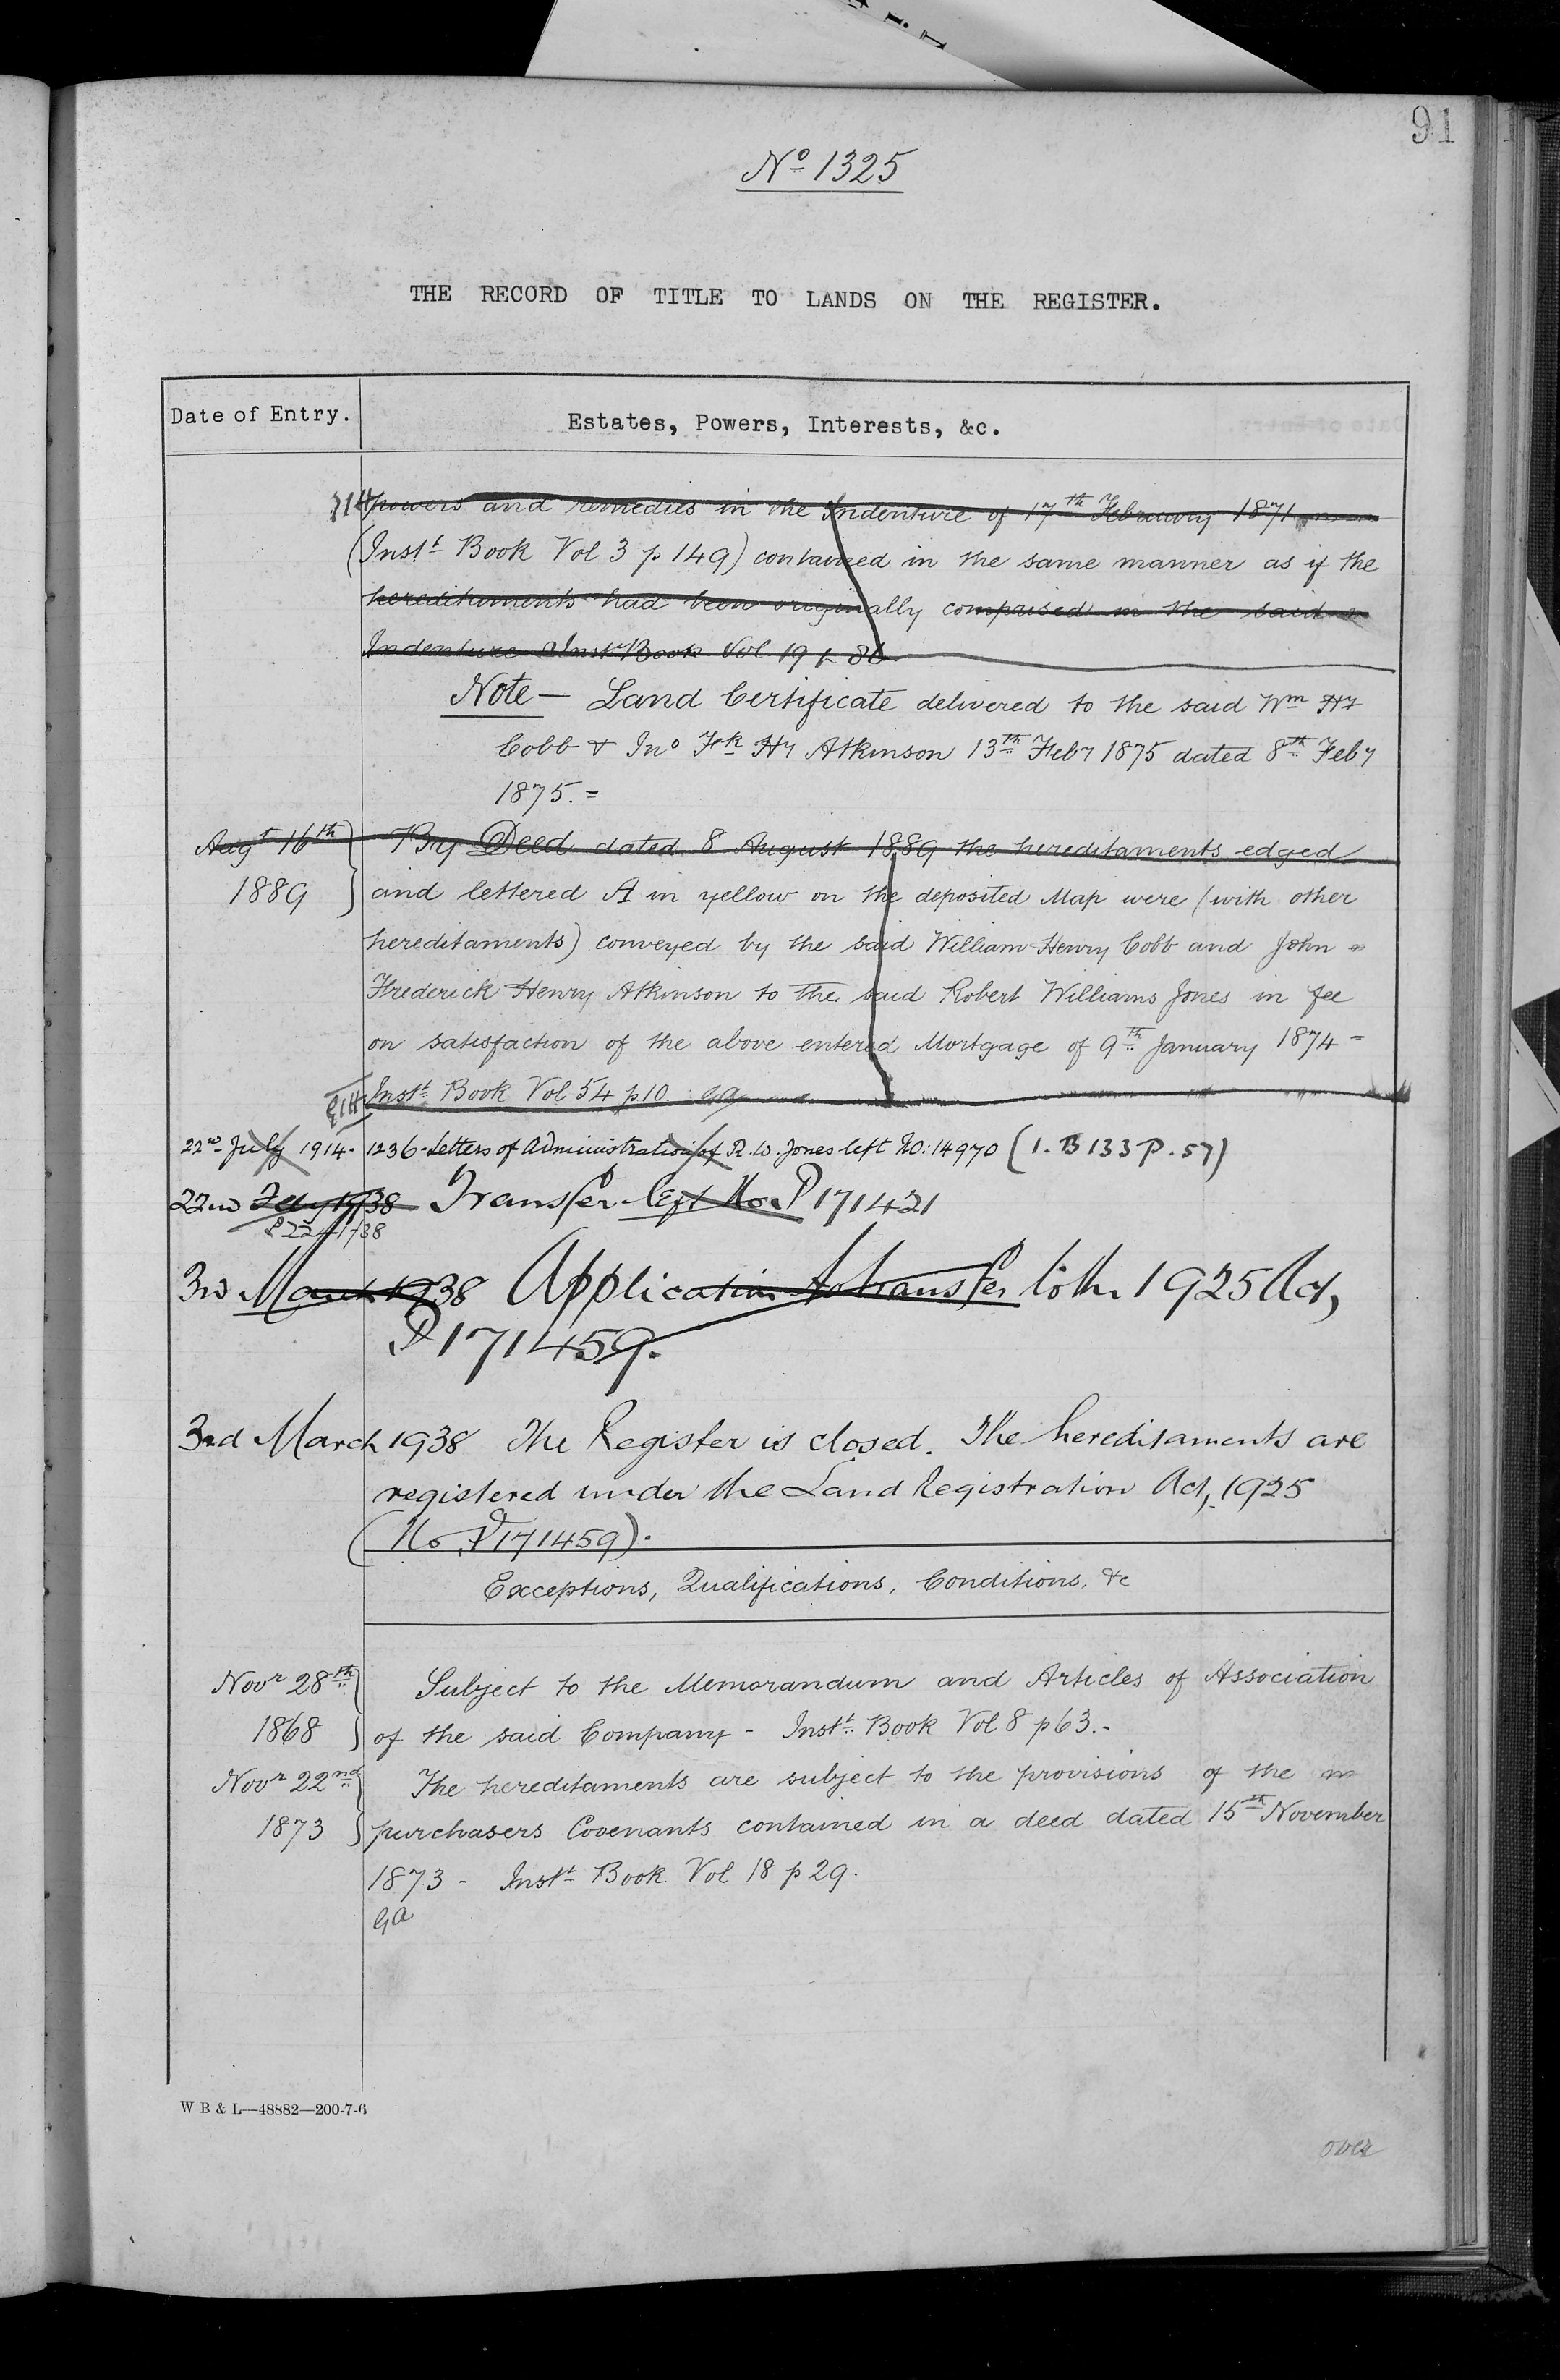 91
Nº 1325
THE RECORD OF TITLE TO LANDS ON THE REGISTER.
Date of Entry.
Estates, Powers, Interests, &c.
powers and remedies in the Indenture of 17th February 1871
(Instt Book Vol 3 p 149) contained in the same manner as if the
hereditaments had been originally comprised in the said
Indenture Instt Book Vol 19 p 86
Note — Land Certificate delivered to the said Wm Hy
Cobb & Jno Fk Hy Atkinson 13th Feby 1875 dated 8th Feby
1875. =
Augt 16th } By Deed dated 8 August 1889 the hereditaments edged
1889 } and lettered A in yellow on the deposited Map were (with other
hereditaments) conveyed by the said William Henry Cobb and John
Frederick Henry Atkinson to the said Robert Williams Jones in fee
on satisfaction of the above entered Mortgage of 9th January 1874 -
Instt Book Vol 54 p 10. GA
22nd July 1914. 1236. Letters of Administration of R. W. Jones left No: 14970 (I. B 133 P. 57)
22nd Feby 1938 Transfer left No. P171421
3rd March 1938 Application to transfer to the 1925 Act,
P171459.
3rd March 1938 The Register is closed. The hereditaments are
registered under the Land Registration Act, 1925
(No. P171459).
Exceptions, Qualifications, Conditions, &c
Novr 28th } Subject to the Memorandum and Articles of Association
1868 } of the said Company - Instt Book Vol 8 p 63. -
Novr 22nd } The hereditaments are subject to the provisions of the
1873 } purchasers Covenants contained in a deed dated 15th November
1873 - Instt Book Vol 18 p 29.
GA
W B & L—48882—200-7-6
over